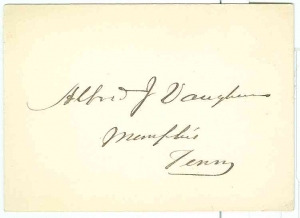 Alfred J Vaughan
Memphis
Tenn